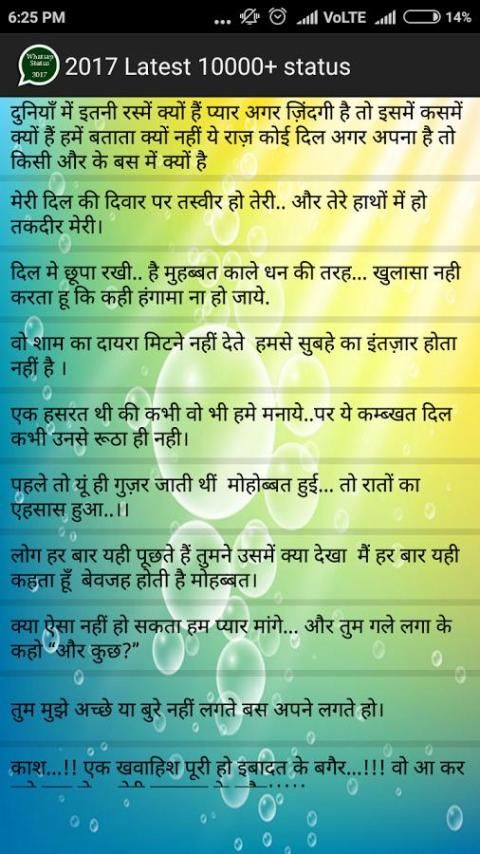 6:25 PM ... VoLTE 14%
Whatsapp
Status
2017
2017 Latest 10000+ status
दुनियाँ में इतनी रस्में क्यों हैं प्यार अगर ज़िंदगी है तो इसमें कसमें
क्यों हैं हमें बताता क्यों नहीं ये राज़ कोई दिल अगर अपना है तो
किसी और के बस में क्यों है
मेरी दिल की दिवार पर तस्वीर हो तेरी.. और तेरे हाथों में हो
तकदीर मेरी।
दिल मे छूपा रखी.. है मुहब्बत काले धन की तरह... खुलासा नही
करता हू कि कही हंगामा ना हो जाये.
वो शाम का दायरा मिटने नहीं देते हमसे सुबहे का इंतज़ार होता
नहीं है ।
एक हसरत थी की कभी वो भी हमे मनाये..पर ये कम्ब्खत दिल
कभी उनसे रूठा ही नही।
पहले तो यूं ही गुज़र जाती थीं मोहोब्बत हुई... तो रातों का
एहसास हुआ..।।
लोग हर बार यही पूछते हैं तुमने उसमें क्या देखा मैं हर बार यही
कहता हूँ बेवजह होती है मोहब्बत।
क्या ऐसा नहीं हो सकता हम प्यार मांगे... और तुम गले लगा के
कहो “और कुछ?”
तुम मुझे अच्छे या बुरे नहीं लगते बस अपने लगते हो।
काश...!! एक खवाहिश पूरी हो इबादत के बगैर...!!! वो आ कर